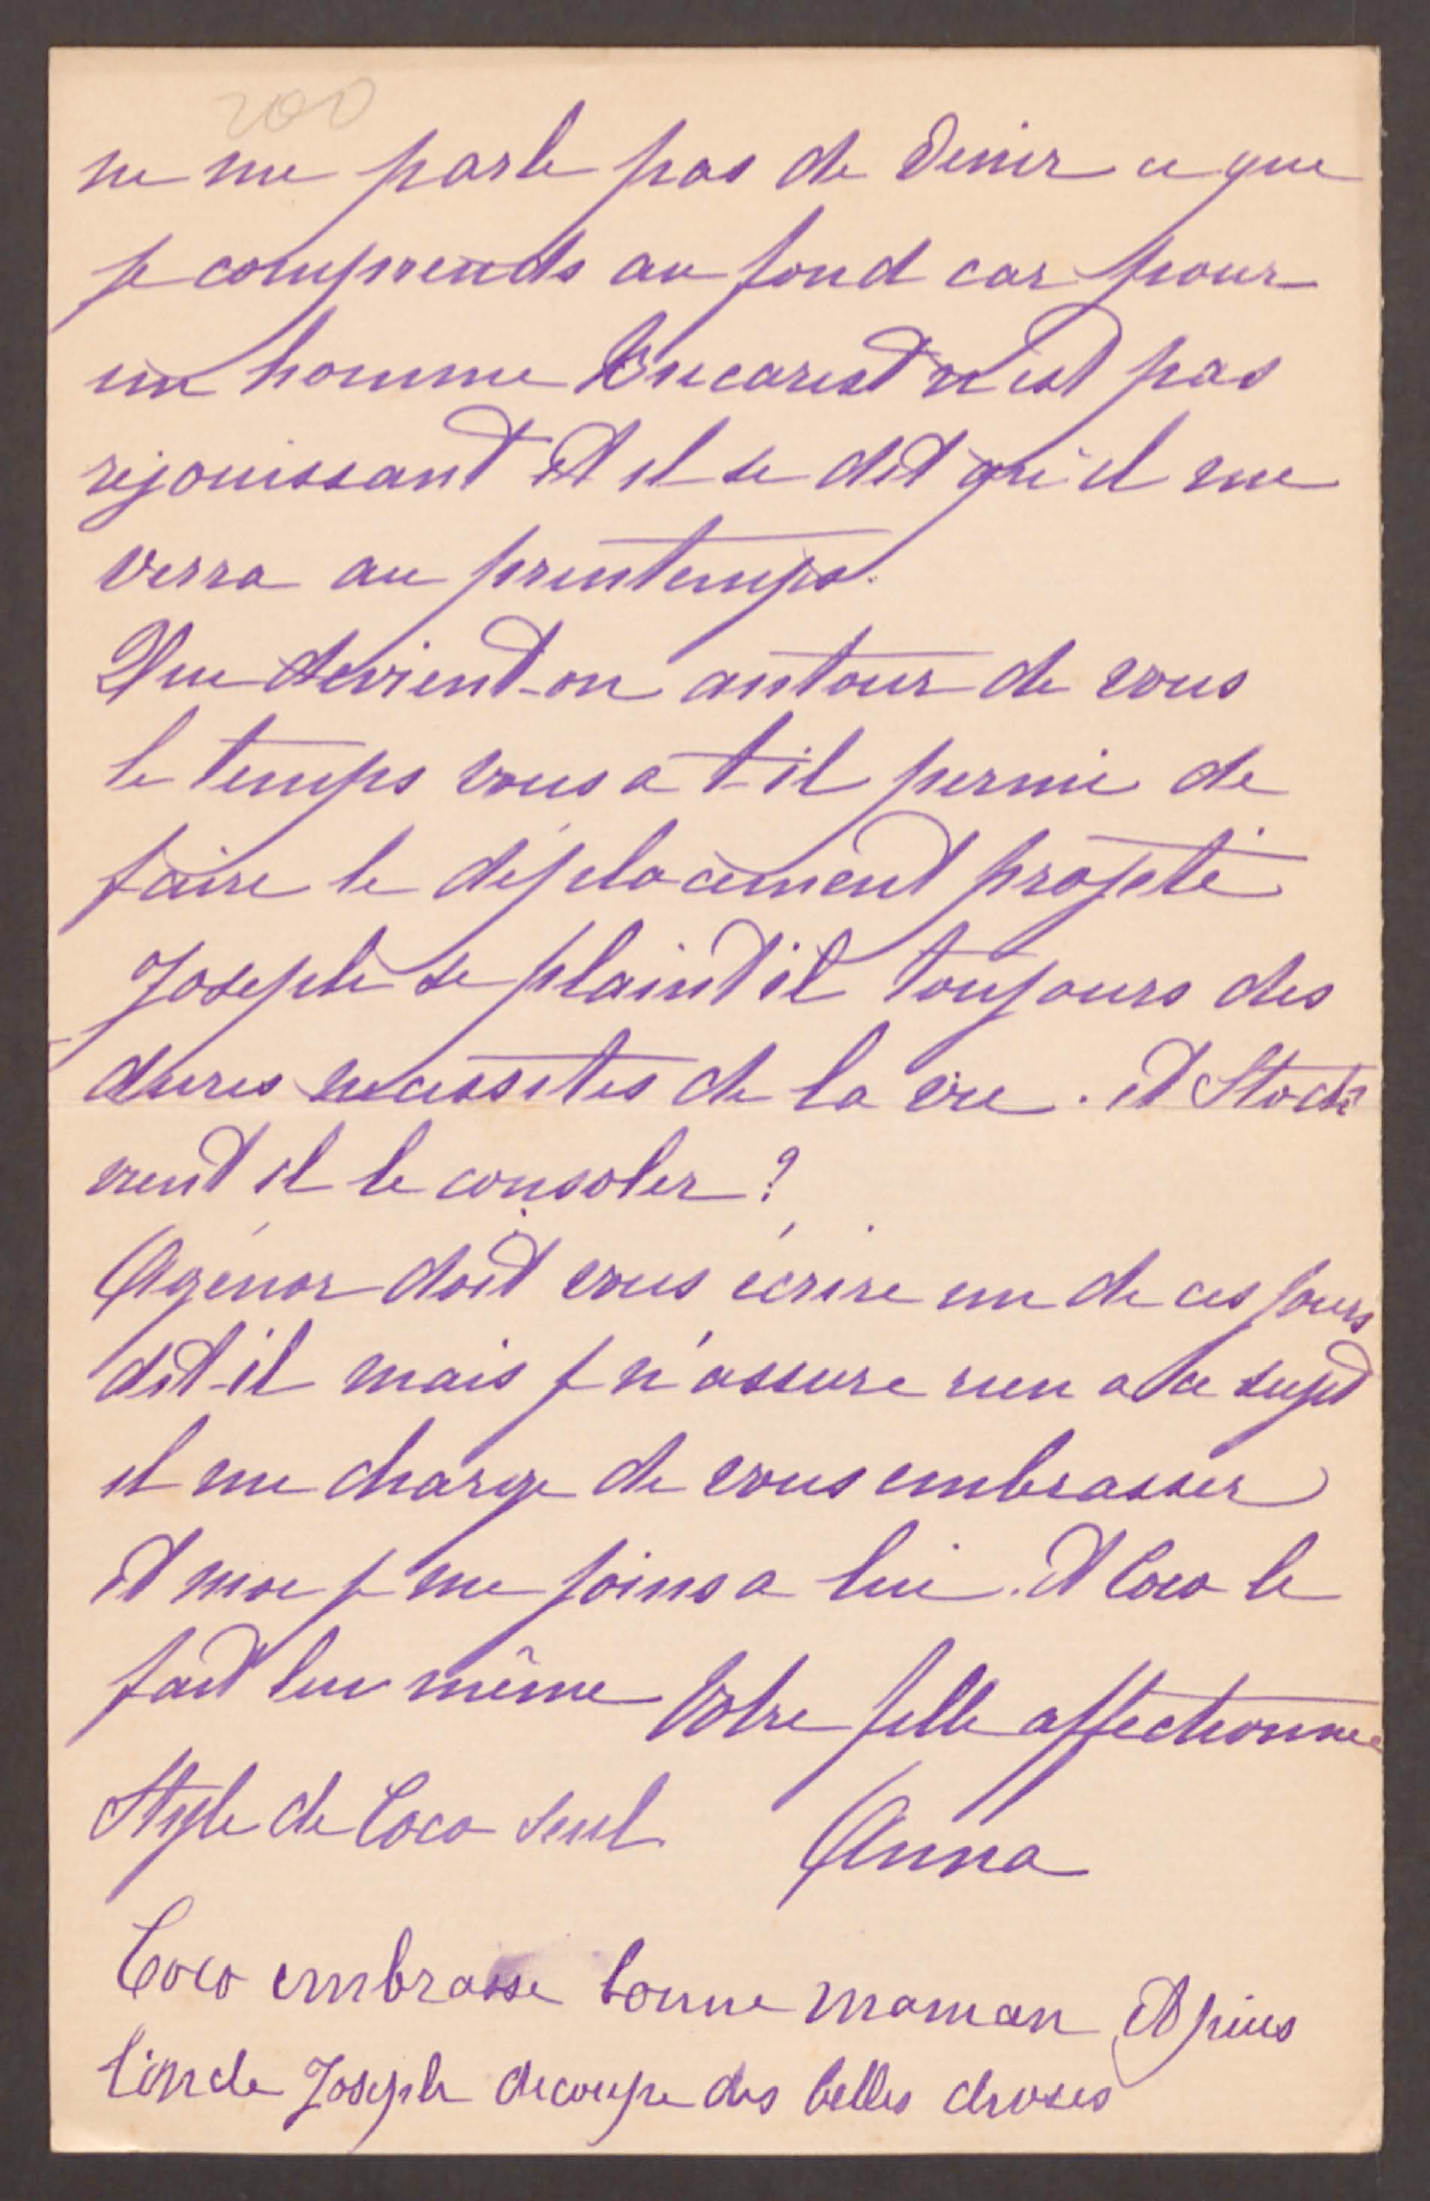 200
ne me parle pas de venir ce que
je comprends au fond car pour
un homme Bucarest n'est pas
rejouissant et il se dit qu'il me
verra au printemps.
Que devient-on autour de vous
le temps vous a t-il permi de
faire le déplacement projeté
Joseph se plaint il toujours des
dures necessites de la vie. et
vient il le consoler ?
Agénor doit vous écrire un de ces jours
dit-il mais je n'assure rien a ce sujet
il me charge de vous embrasser
et moi je me joins a lui. Et Coco le
fait lui même Votre fille affectionnée
Style de Coco seul Anna
Coco embrasse bonne maman et puis
l'oncle Joseph decoupe des belles choses